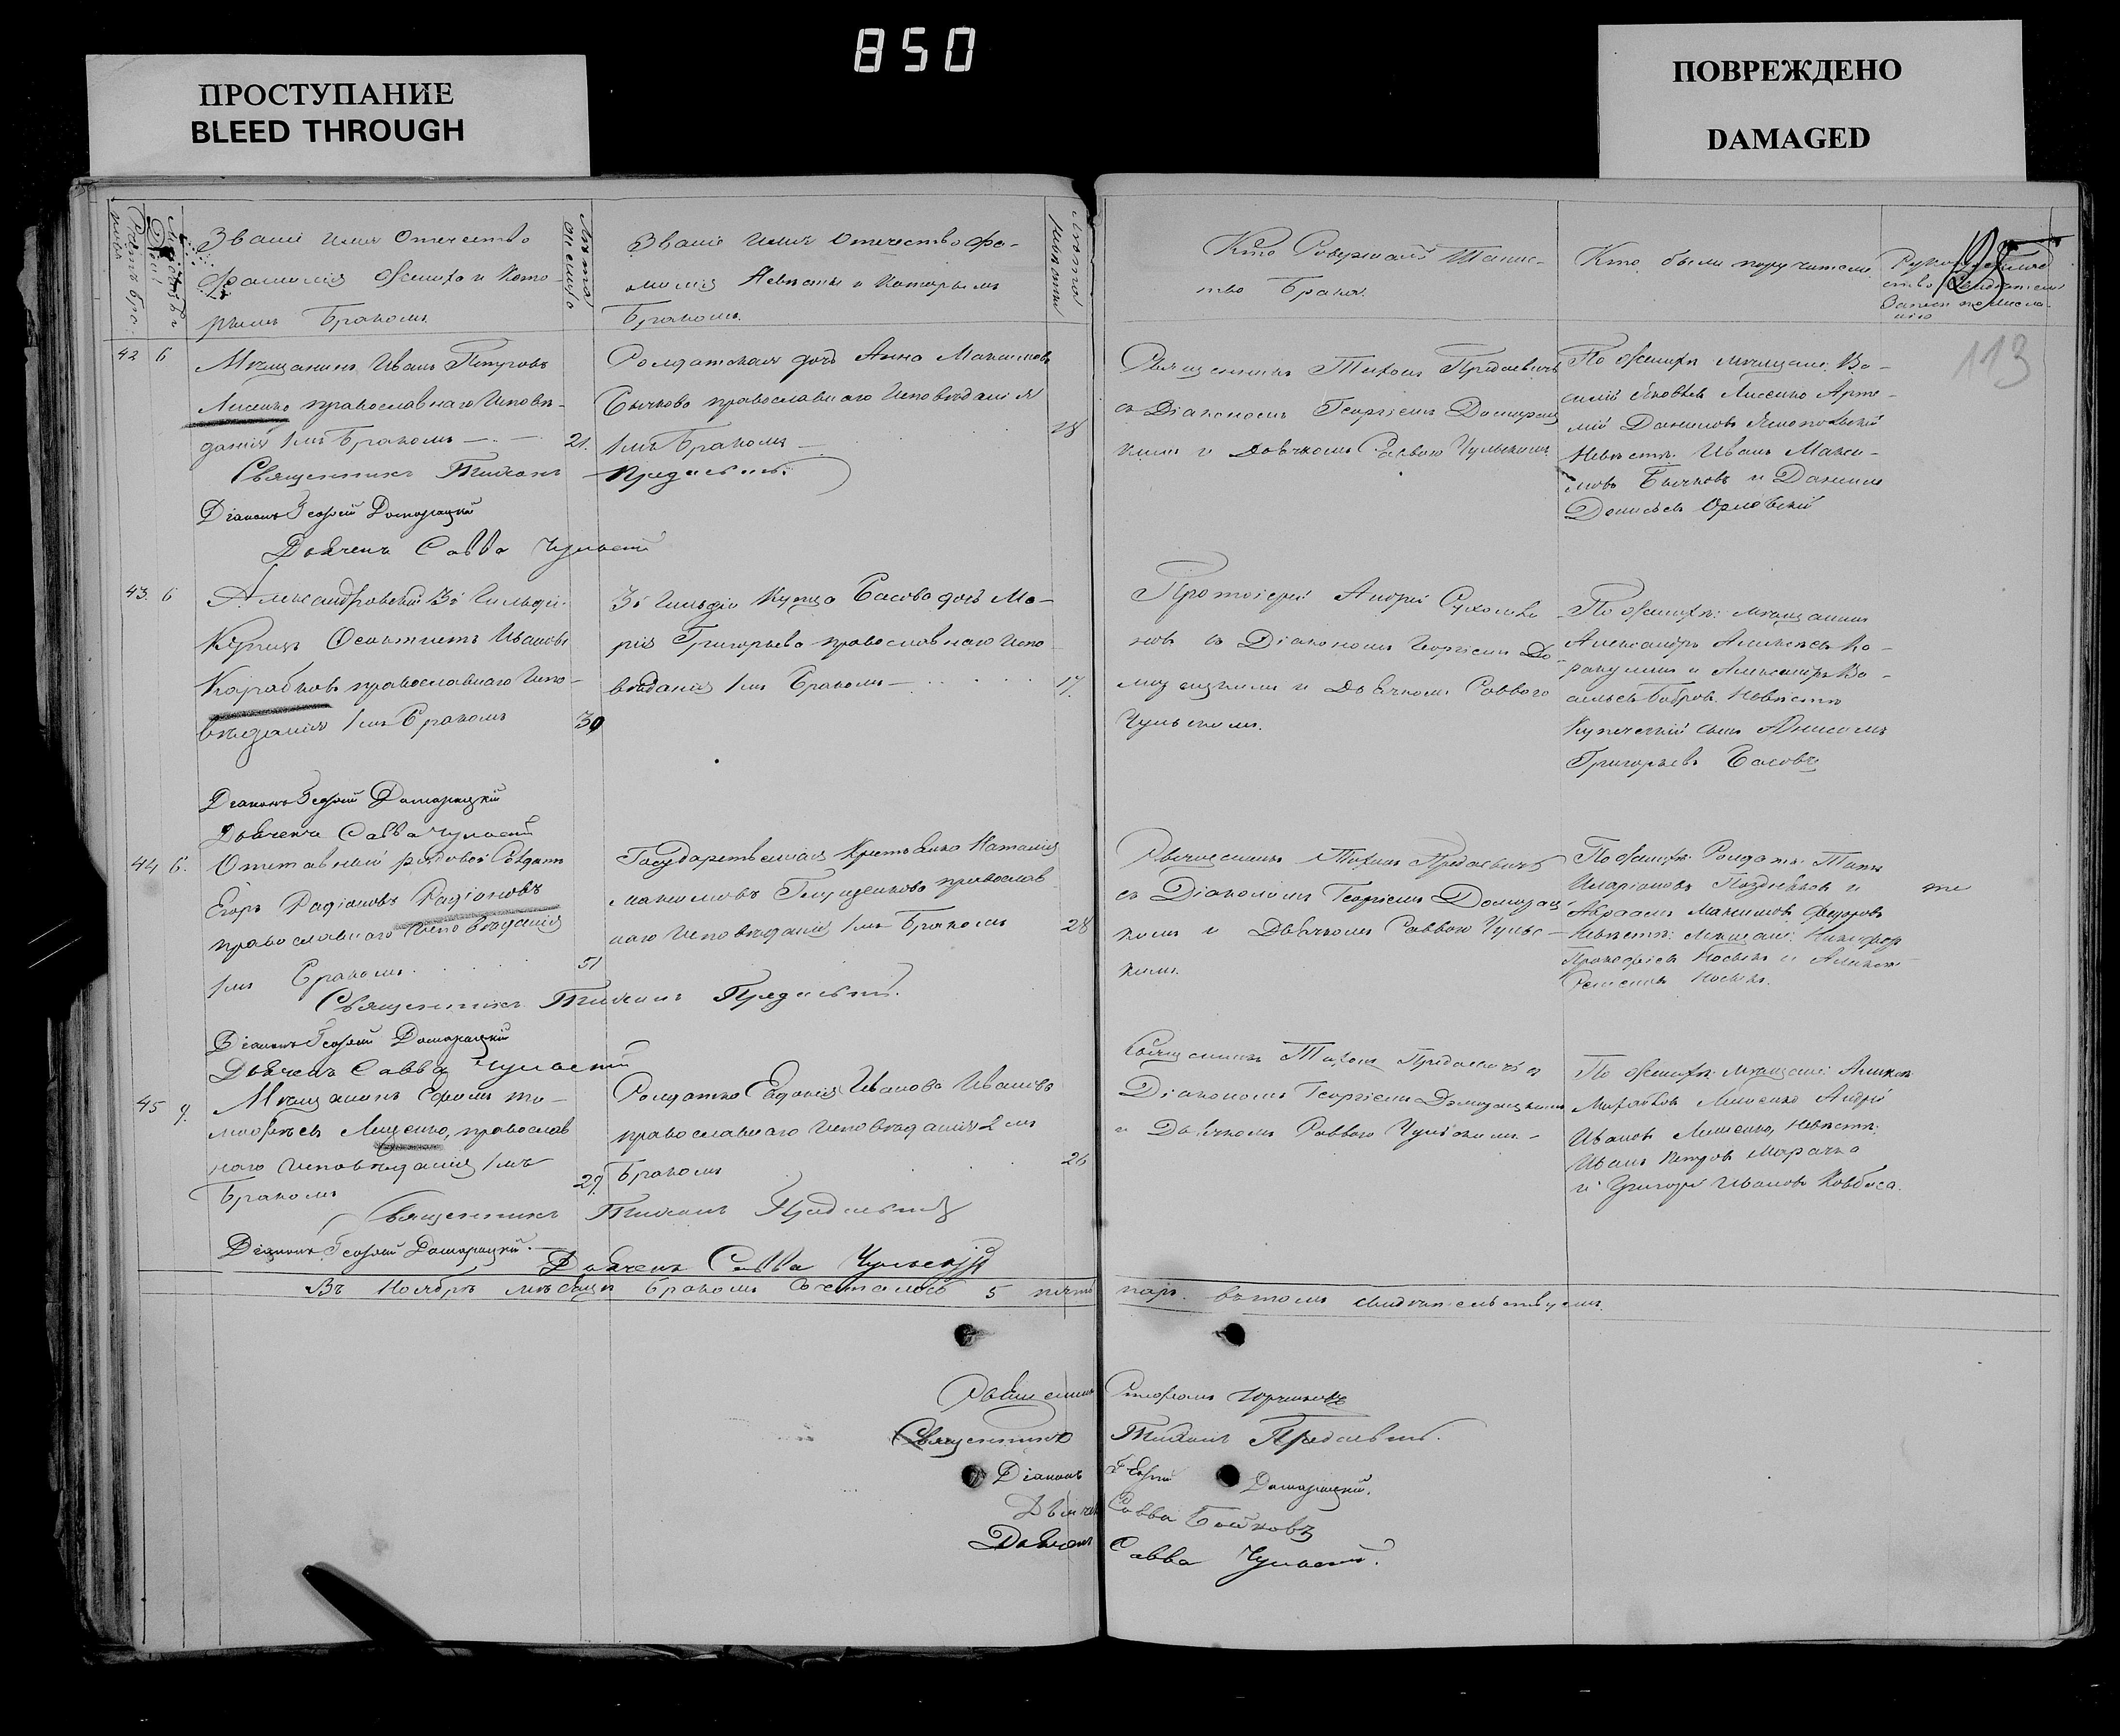 850
ПРОСТУПАНИЕ
BLEED THROUGH
ПОВРЕЖДЕНО
DAMAGED
Званіе Имя Отечество
фамилія Жениха и Кото-
рымъ Бракомъ
Лѣта жениха
Званіе Имя Отечество фа-
милія Невѣсты и Которымъ
Бракомъ.
Лѣта невѣсты
Кто Совершалъ Таинс-
тво Брака.
Кто были поручители
113
42 6
Мѣщанинъ Иванъ Петровъ
Лисенко православнаго Исповѣ-
данія 1мъ Бракомъ 21.
Священникъ Тихонъ
Діаконъ Георгій Доморацкій
Дьячекъ Савва Чульскій
Солдатская дочь Анна Максимова
Бычкова православнаго Исповѣданія
1мъ Бракомъ 18
Священникъ Тихонъ
съ Діакономъ Георгіемъ Доморац
кимъ и Дьячкомъ Саввою Чульскимъ
По Женихѣ мѣщане: Ва-
силій Яковлевъ Лисенко Арте-
мій Даниловъ
Невѣстѣ: Иванъ Макси-
мовъ Бычковъ и Даніилъ
Денисьевъ Орловскій
43. 6
Александровскій 3й Гильдіи
Купецъ Ивановъ
Карабковъ православнаго Испо-
вѣданія 1мъ Бракомъ 30
Діаконъ Георгій Доморацкій
Дьячекъ Савва Чульскій
3й Гильдіи Купца Басова дочь Ма-
рія Григорьева православнаго Испо
вѣданія 1мъ Бракомъ 17.
Протоіерей Андрей
съ Діакономъ Георгіемъ До-
морацкимъ и Дьячкомъ Саввою
Чульскимъ.
По Женихѣ: мѣщанинъ
Александръ Алексѣевъ Ка-
ракулинъ и Александръ Ва-
сильевъ Бобровъ. Невѣстѣ
Купеческій сынъ
Григорьевъ Басовъ
44 6.
Отставный рядовой Солдатъ
Егоръ Радіоновъ Радіоновъ
православнаго Исповѣданія
1мъ Бракомъ 51
Священникъ Тихонъ
Діаконъ Георгій Доморацкій
Дьячекъ Савва Чульскій
Государственная Крестьянка Наталія
Максимовъ православ
наго Исповѣданія 1мъ Бракомъ 28
Священникъ Тихонъ
съ Діакономъ Георгіемъ Доморац
кимъ и Дьячкомъ Саввою Чульс-
кимъ.
По Женихѣ: Солдаты:
Иларіоновъ Поздняковъ и
Абраамъ Максимовъ Федоровъ
Невѣстѣ: мѣщане: Никифоръ
Прокофіевъ Носыкъ и
45 9.
Мѣщанинъ Ефимъ Ти-
мофѣевъ Лищенко, православ
наго Исповѣданія 1мъ
Бракомъ 29.
Священникъ Тихонъ
Діаконъ Георгій Доморацкій.
Дьячекъ Савва Чульскій
Солдатка Евдокія Иванова Иванова
православнаго Исповѣданія 2мъ
Бракомъ 26
Священникъ Тихонъ съ
Діакономъ Георгіемъ Доморацкимъ
и Дьячкомъ Саввою Чульскимъ
По Женихѣ: Мѣщане:
Лисенко Андрей
Ивановъ Лисенко, Невѣстѣ:
Иванъ Петровъ
и Григорій Ивановъ Ковбаса.
Въ Ноябрѣ мѣсяцѣ Бракомъ сочеталось 5 пять паръ. въ томъ свидѣтельствуемъ.
Священникъ Стефанъ
Священникъ Тихонъ
Діаконъ Георгій Доморацкій.
Дьячекъ Савва Бойковъ
Дьячекъ Савва Чульскій.